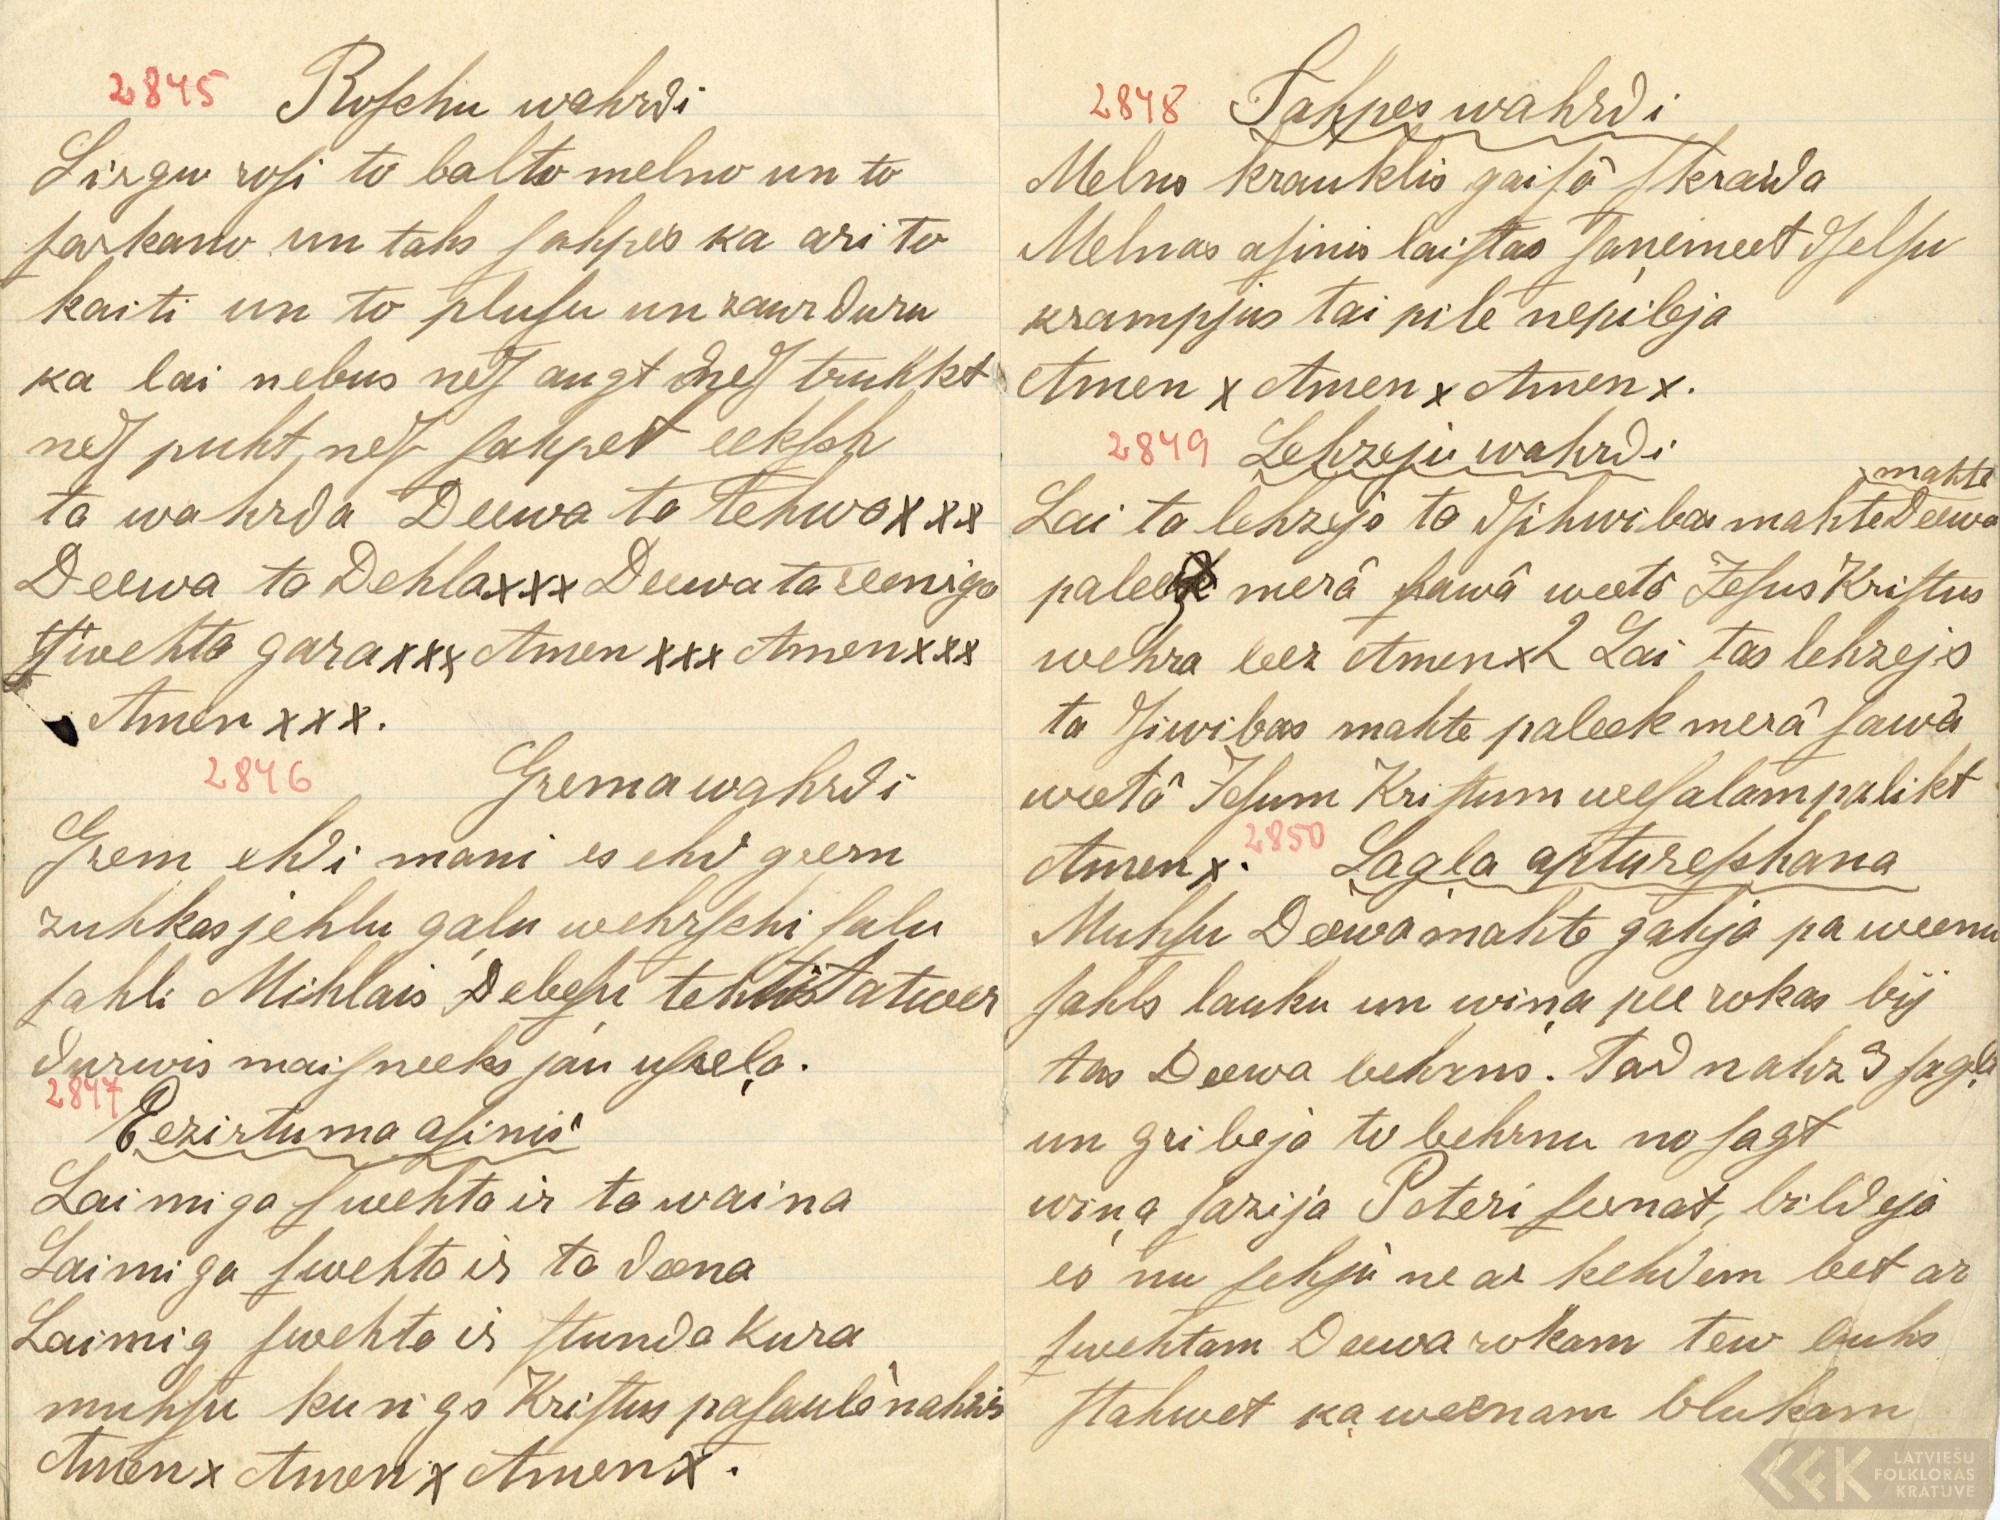 2845 Roſchu wahrdi
Lizgu roſi to balto melno un to
ſarkano un tahs ſahpes ka ari to
kaiti un to pluſu un zaurduru
ka lai nebus nedſ augt nedſ truhkt
nedſ puht, nedſ ſahpet eekſch
ta wahrda Deewa ta Tehwa xxx
Deewa ta Dehla xxx Deewa ta zeeniga
ſwehta gara xxx Amen xxx Amen xxx
Amen xxx.
2846 Grema wahrdi
Grem ehdi mani es ehd grem
zuhkas jehlu gaļu wehrſchi ſalu
ſahli Mihlais Debeſu tehtis atwer
durwis maiſneeks jau uſzeļa.
2847
Eezirtuma aſinis
Laimiga ſwehta ir ta waina
Laimiga ſwehta ir ta deena
Laimig ſwehta ir ſtunda kura
muhſu kungs Kriſtus paſaulê nahzis
Amen x Amen x Amen x.
2848 Sahpes wahrdi
Melns krauklis gaiſâ ſkraida
Melnas aſinis laiſtas Saņemeet dſelſu
krampjus tai pile nepileja
Amen x Amen x Amen x.
2849 Lehzeju wahrdi
mahte
Lai ta lehzeja ta dſihwibas mahte Deewa
paleek merâ ſawâ weetâ Jeſus Kriſtus
wehra bez Amen x 2 Lai tas lehzejs
ta dſiwibas mahte paleek merâ ſawâ
weetâ Jeſum Kriſtum ueeſalam palikt
Amen x. 2850 Sagļa aptureſchana
Muhſu Deewa mahte gahja pa weenu
ſahls lauku un wiņa pee rokas bij
tas Deewa behrns. Tad nahz 3 ſagļa
un gribeja to behrnu noſagt
wiņa ſazija Peteri ſeenat, bildeja
es nu ſehju ne ar kehdem bet ar
ſwehtam Deewa rokam tew buhs
ſtahwet ka weenam blukam
LATVIEŠU
FOLKLORAS
KRĀTUVE